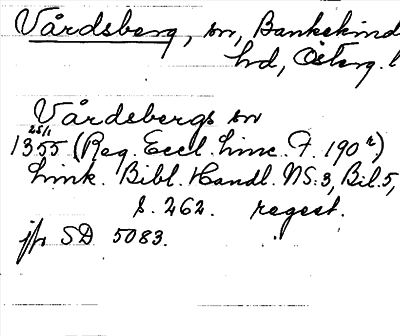 Vårdsberg, sn, Bankekind
hd, Österg. l
Vårdsbergs sn
25/1
1355 (Reg. Eccl. Linc. F. 190 r,)
Link. Bibl. Handl. NS:3, Bil. 5,
s. 262. regest.
jfr SD 5083.